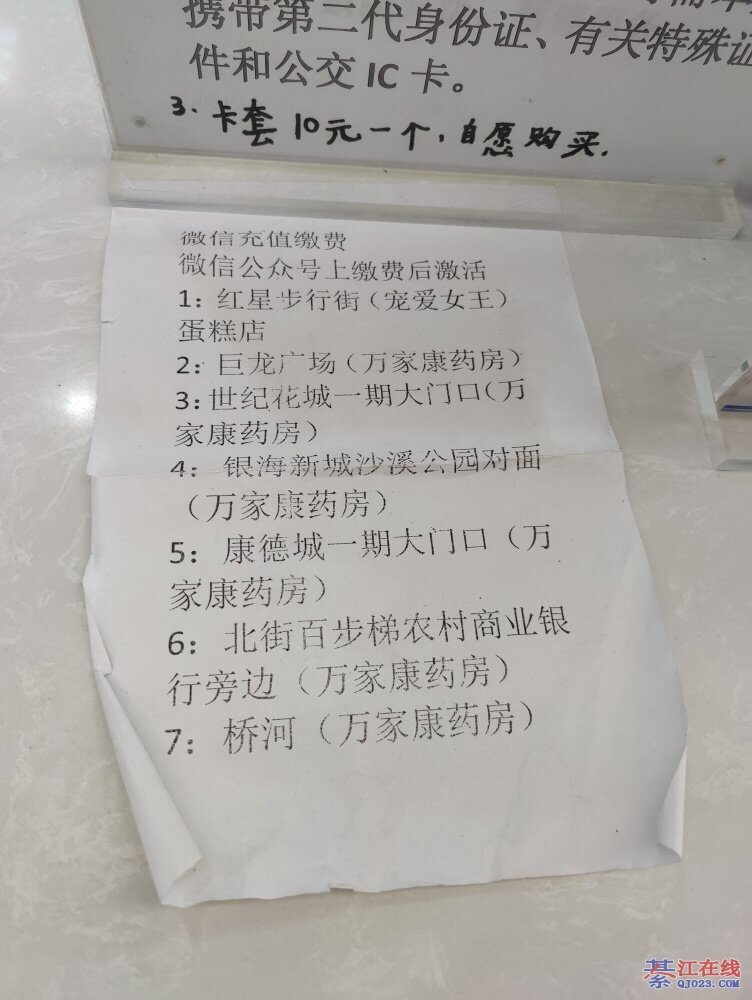 携带第二代身份证、有关特殊证
件和公交 IC 卡。
3. 卡套 10元一个, 自愿购买.
微信充值缴费
微信公众号上缴费后激活
1: 红星步行街（宠爱女王）
蛋糕店
2: 巨龙广场（万家康药房）
3: 世纪花城一期大门口（万
家康药房）
4: 银海新城沙溪公园对面
（万家康药房）
5: 康德城一期大门口（万
家康药房）
6: 北街百步梯农村商业银
行旁边（万家康药房）
7: 桥河（万家康药房）
綦江在线
QJ023.COM